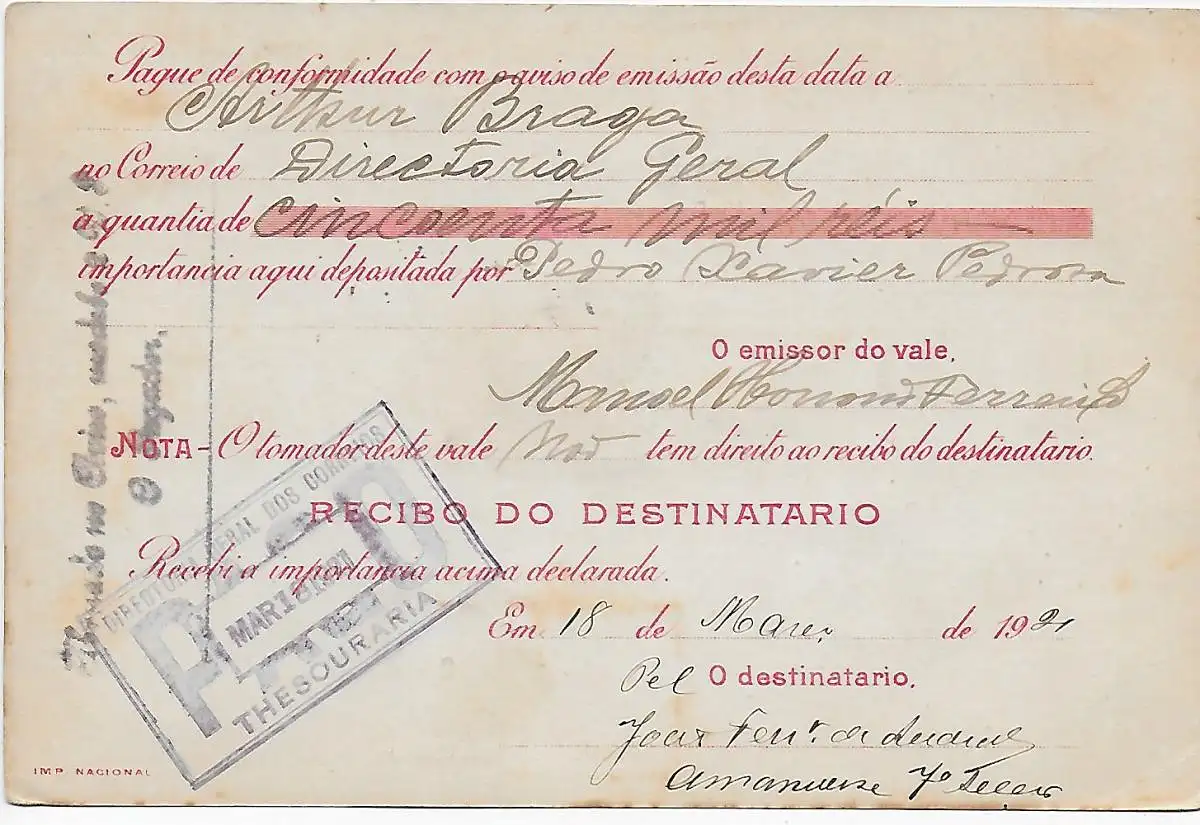 Pague de conformidade com aviso de emissão desta data a
Arthur Braga
no Correio de Directoria Geral
a quantia de cincoenta mil réis
importancia aqui depositada por Pedro Xavier Pedrosa
O emissor do vale,
Manoel Ferreira
NOTA - O tomador deste vale não tem direito ao recibo do destinatario.
RECIBO DO DESTINATARIO
Recebi a importancia acima declarada.
Em 18 de Março de 1921
Pel O destinatario,
de Andrade
Amanuense 7º
IMP. NACIONAL
DIRECTORIA GERAL DOS CORREIOS
PAGO
MAR 18 1921
THESOURARIA
O Pagador,